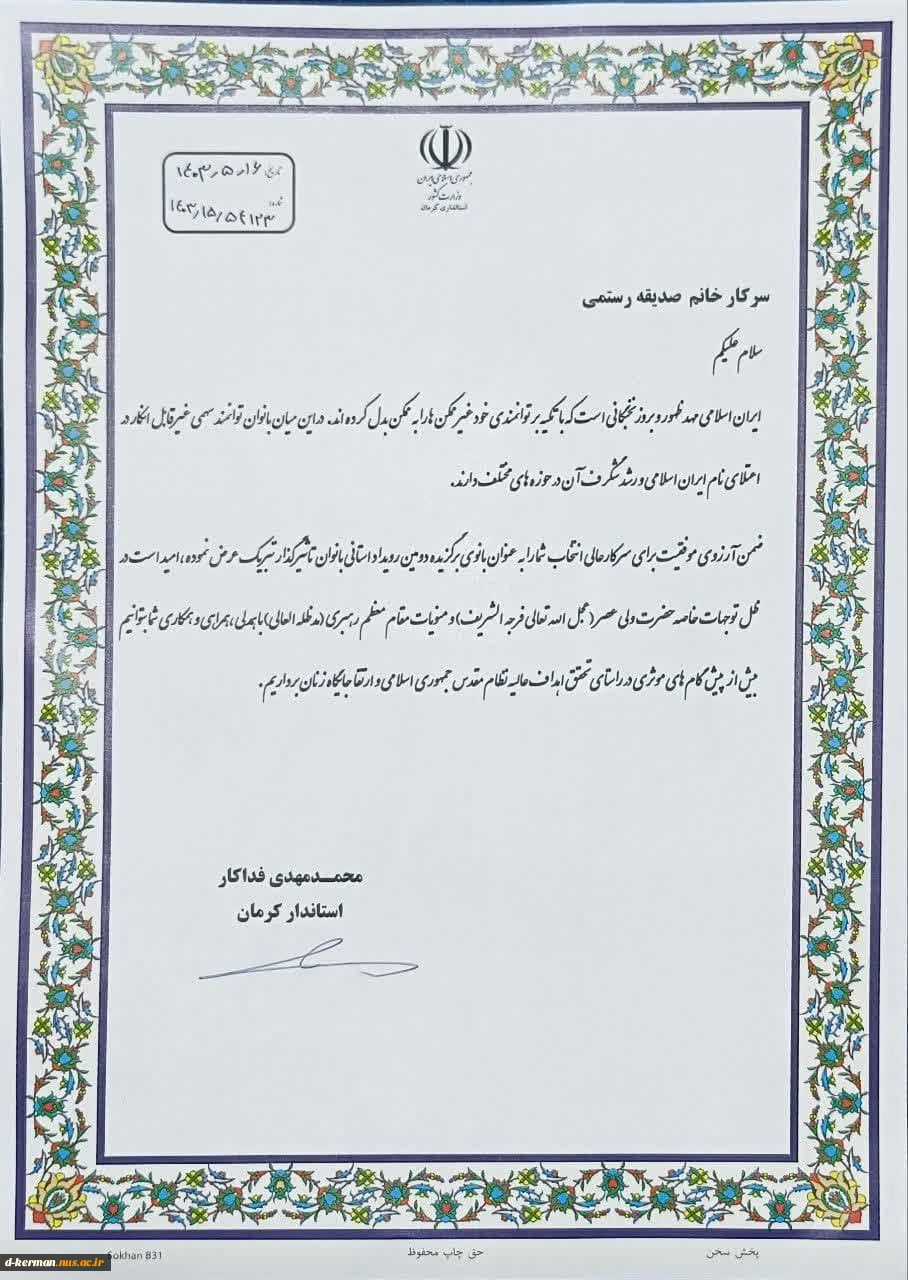 جمهوری اسلامی ایران
وزارت کشور
استانداری کرمان
تاریخ: ۱۴۰۳٫۵٫۱۶
شماره: ۱۴۰۳/۱۵/۵۴۱۲۳
سرکار خانم صدیقه رستمی
سلام علیکم
ایران اسلامی مهد ظهور و بروز نخبگانی است که با تکیه بر توانمندی خود غیرممکن ها را به ممکن بدل کرده اند. در این میان بانوان توانمند سهمی غیرقابل انکار در
اعتلای نام ایران اسلامی و رشد شگرف آن در حوزه های مختلف دارند.
ضمن آرزوی موفقیت برای سرکارعالی انتخاب شما را به عنوان بانوی برگزیده دومین رویداد استانی بانوان تاثیرگذار تبریک عرض نموده، امید است در
ظل توجهات خاصه حضرت ولی عصر (عجل الله تعالی فرجه الشریف) و منویات مقام معظم رهبری (مدظله العالی) با همدلی، همراهی و همکاری شما بتوانیم
بیش از پیش گام های موثری در راستای تحقق اهداف عالیه نظام مقدس جمهوری اسلامی و ارتقا جایگاه زنان برداریم.
محمدمهدی فداکار
استاندار کرمان
پخش سخن
حق چاپ محفوظ
Sokhan B31
d-kerman.nus.ac.ir